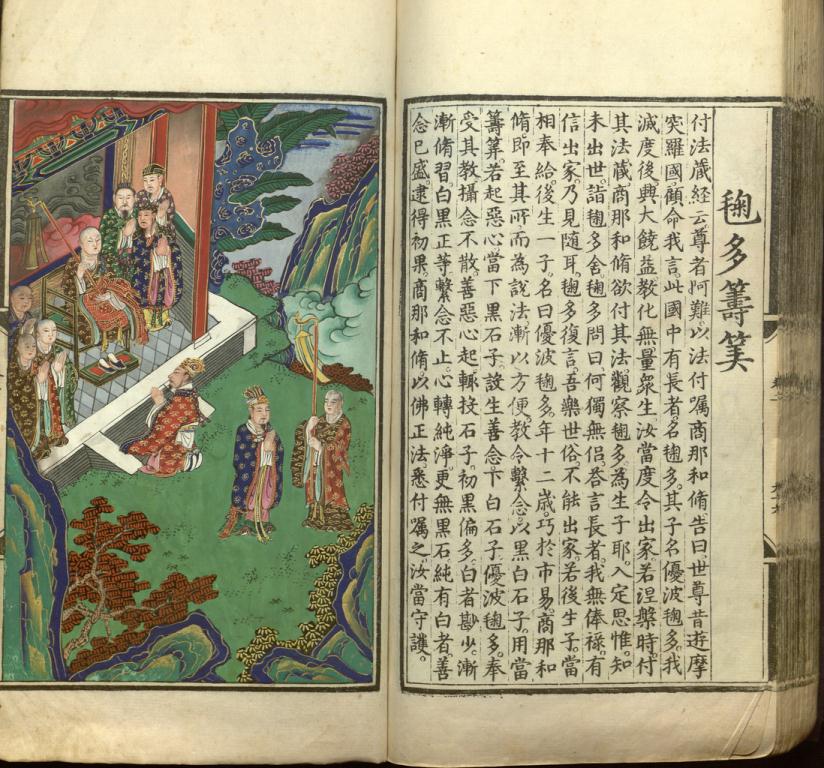 毱多籌筭
付法藏経云尊者阿難以法付嘱商那和脩告曰世尊昔遊摩
突羅國顧命我言此國中有長者名毱多其子名優波毱多我
滅度後興大饒益教化無量衆生汝當度令出家若涅槃時付
其法藏商那和脩欲付其法觀察毱多為生子耶入定思惟知
未出世詣毱多舍毱多問曰何獨無侣答言長者我無俸禄有
信出家乃見随耳毱多復言吾樂世俗不能出家若後生子當
相奉給後生一子名曰優波毱多年十二歲巧於市易商那和
脩即至其所而為說法漸以方便教令繫念以黑白石子用當
籌筭若起惡心當下黑石子設生善念下白石子優波毱多奉
受其教攝念不散善惡心起輒投石子初黑偏多白者尠少漸
漸脩習白黑正等繫念不止心轉純淨更無黑石純有白者善
念已盛逮得初果商那和脩以佛正法悉付嘱之汝當守護